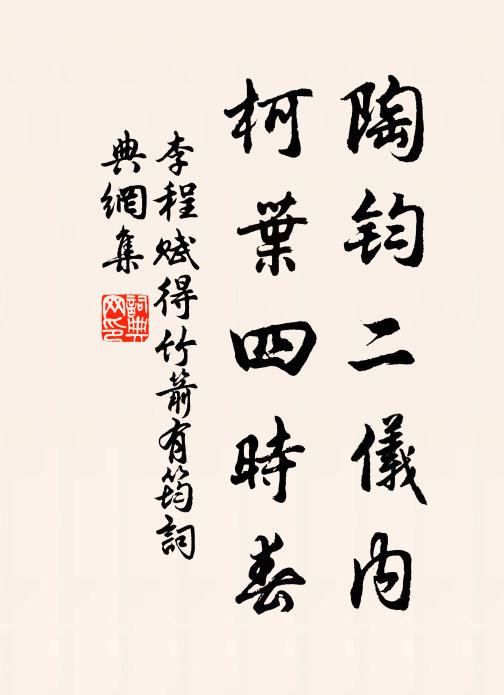 陶鈞二儀內
柯葉四時春
李程賦得竹箭有筠詞
典網集
詞典網印